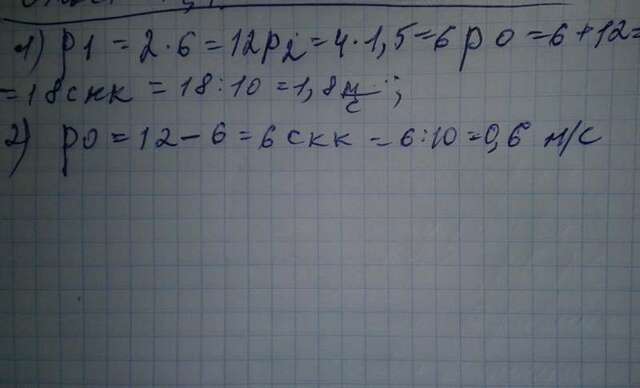 1) p1 = 2·6 = 12 p2 = 4·1,5 = 6 p0 = 6+12 =
= 18 скк = 18:10 = 1,8 м/с;
2) p0 = 12 - 6 = 6 скк = 6:10 = 0,6 м/с